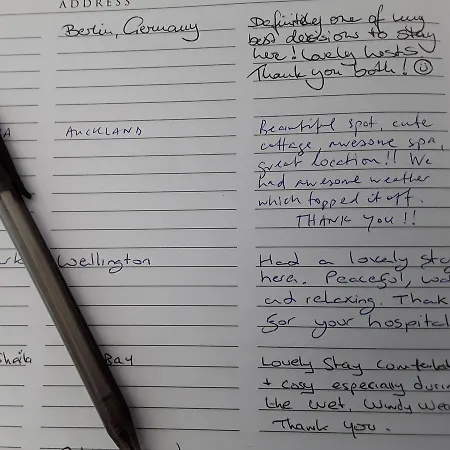 ADDRESS
Berlin, Germany
Definitely one of my
best decisions to stay
here! Lovely hosts
Thank you both! ☺
A
AUCKLAND
Beautiful spot, cute
cottage, awesome spa,
great location!! We
had awesome weather
which topped it off.
THANK YOU!!
ark
Wellington
Had a lovely stay
here. Peaceful, wa
and relaxing. Thank
for your hospital
Sheila
Bay
Lovely Stay comfortabl
+ cosy especially durin
the wet, windy Wea
Thank you.